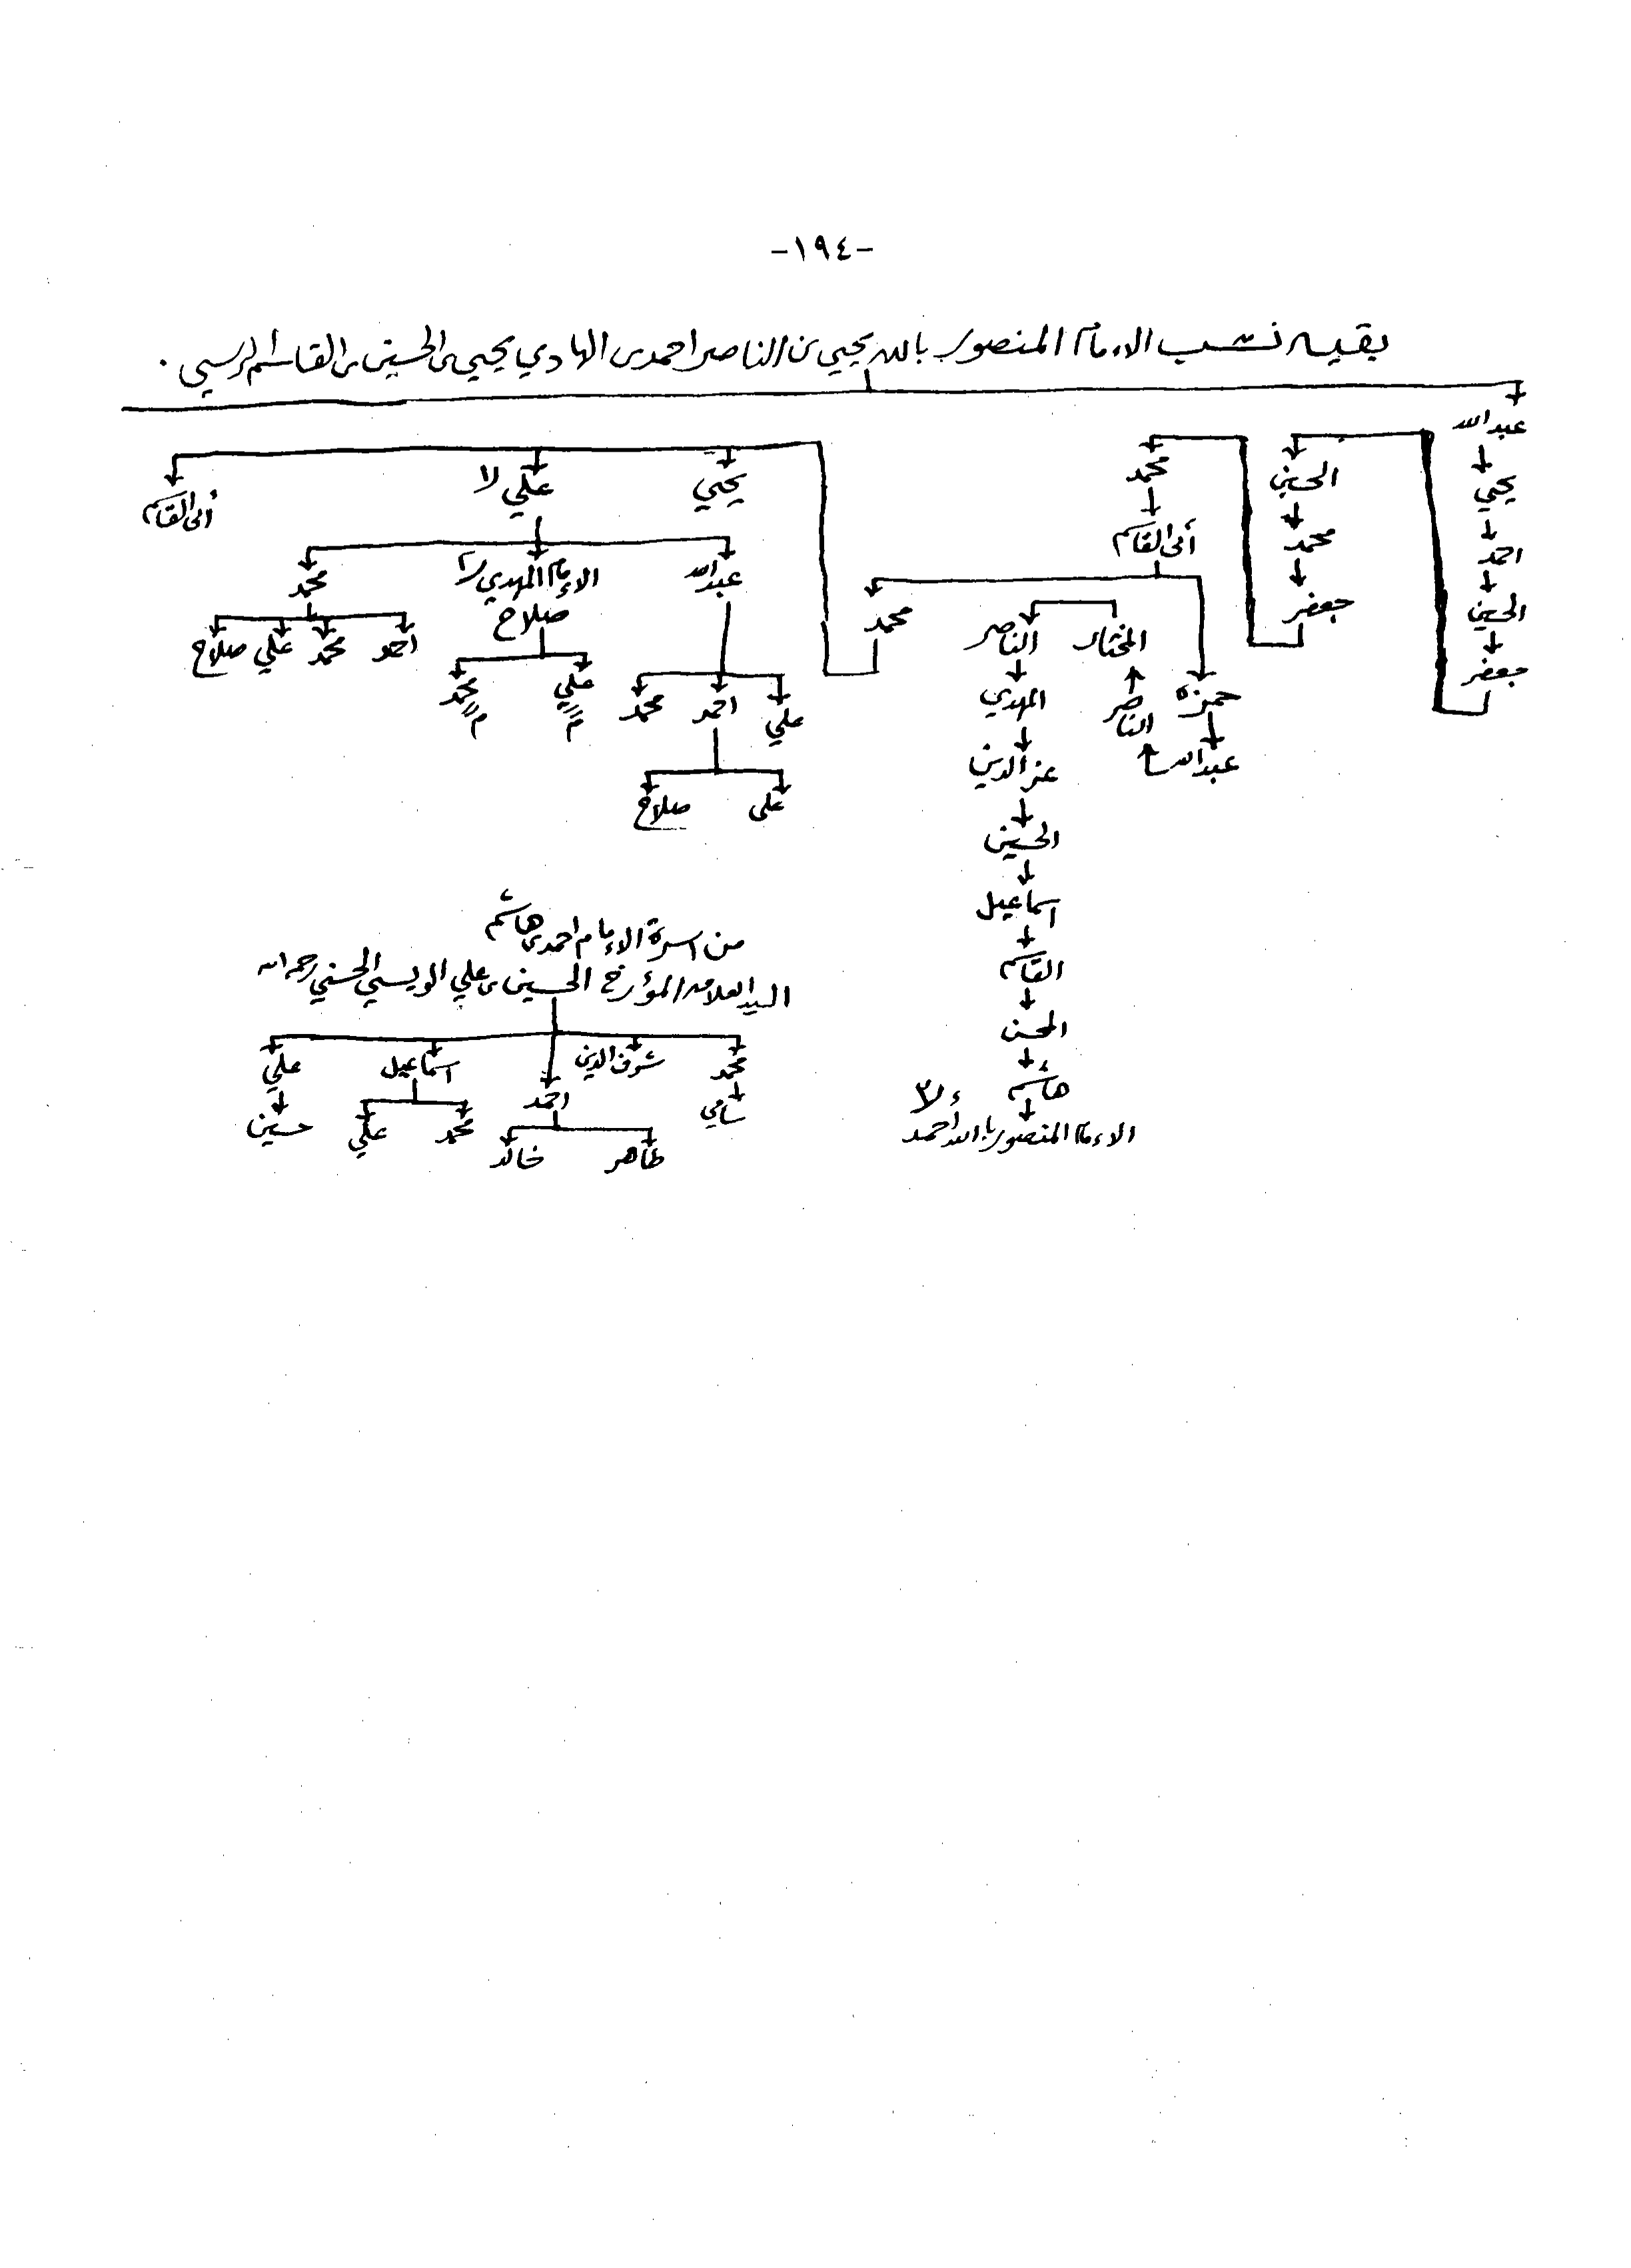 -١٩٤-
بقيه نسب الامام المنصور بالله يحيي بن الناصر احمد بن الهادي يحيي بن الحسين بن القاسم الرسي .
عبدالله
يحيي
احمد
الحسين
جعفر
الحسين
محمد
جعفر
محمد
أبي القاسم
حمزه
عبدالله
الناصر
المختار
الناصر
المهدي
عز الدين
الحسين
اسماعيل
القاسم
المحسن
هاشم
الامام المنصور بالله احمد
محمد
يحيي
علي
أبي القاسم
عبدالله
الإمام المهدي
صلاح
محمد
علي
احمد
محمد
علي
صلاح
علي
محمد
احمد
محمد
علي
صلاح
من اسرة الإمام احمد بن هاشم
السيد العلامه المؤرخ الحسين بن علي الويسي الحسني رحمه الله
محمد
سامي
شرف الدين
احمد
طاهر
خالد
اسماعيل
محمد
علي
علي
حسين